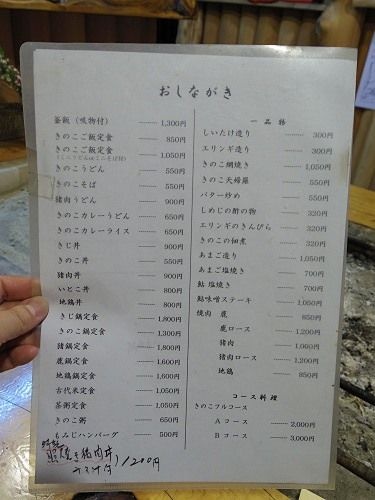 おしながき
釜飯（吸物付） 1,300円
きのこご飯定食 850円
きのこご飯定食 1,050円
きのこうどん 550円
きのこそば 550円
猪肉うどん 900円
きのこカレーうどん 650円
きのこカレーライス 650円
きじ丼 900円
きのこ丼 550円
猪肉丼 900円
いとこ丼 800円
地鶏丼 800円
きじ鍋定食 1,800円
きのこ鍋定食 1,300円
猪鍋定食 1,800円
鹿鍋定食 1,600円
地鶏鍋定食 1,600円
古代米定食 1,050円
茶粥定食 1,050円
きのこ粥 650円
もみじハンバーグ 500円
焼き猪肉丼
1200円
一品物
しいたけ造り 300円
エリンギ造り 300円
きのこ網焼き 1,050円
きのこ天婦羅 550円
バター炒め 550円
しめじの酢の物 320円
エリンギのきんぴら 320円
きのこの佃煮 320円
あまご造り 1,050円
あまご塩焼き 700円
鮎 塩焼き 700円
鮎味噌ステーキ 1,050円
焼肉 鹿 850円
鹿ロース 1,200円
猪肉 1,000円
猪肉ロース 1,200円
地鶏 850円
コース料理
きのこフルコース
Aコース 2,000円
Bコース 3,000円